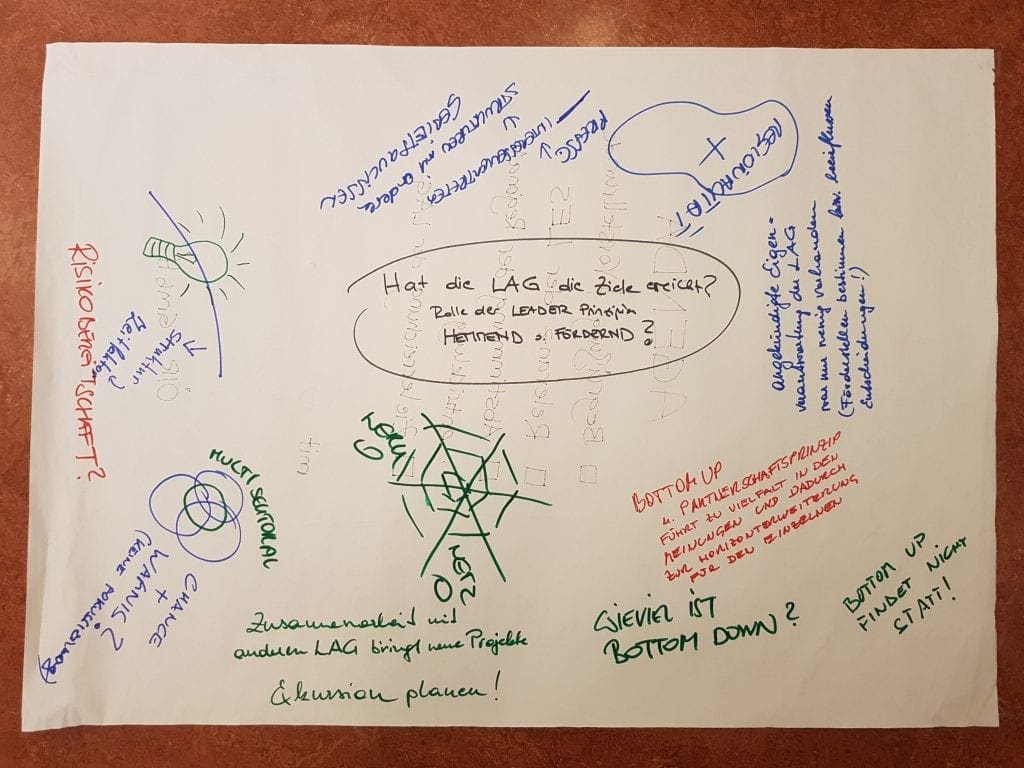 Hat die LAG die Ziele erreicht?
Rolle der LEADER Prinzipien
HEMMEND o. FÖRDERND?
PRESSE
INTERESSENVERTRETER
STRUKTUREN mit andere
GEBIETSKULISSEN
REGIONALITÄT
angekündigte Eigen-
verantwortung der LAG
war nur wenig vorhanden
(Förderstellen bestimmen bzw. beeinflussen
Entscheidungen!)
RISIKOBEREITSCHAFT?
Struktur
Zeitfaktor
MULTI SEKTORAL
CHANCE
+
WAGNIS?
LOKAL
NETZ
Zusammenarbeit mit
anderen LAG bringt neue Projekte
Exkursion planen!
BOTTOM UP
u. PARTNERSCHAFTSPRINZIP
FÜHRT ZU VIELFALT IN DEN
MEINUNGEN UND DADURCH
ZUR HORIZONTERWEITERUNG
FÜR DEN EINZELNEN
WIEVIEL IST
BOTTOM DOWN?
BOTTOM UP
FINDET NICHT
STATT!